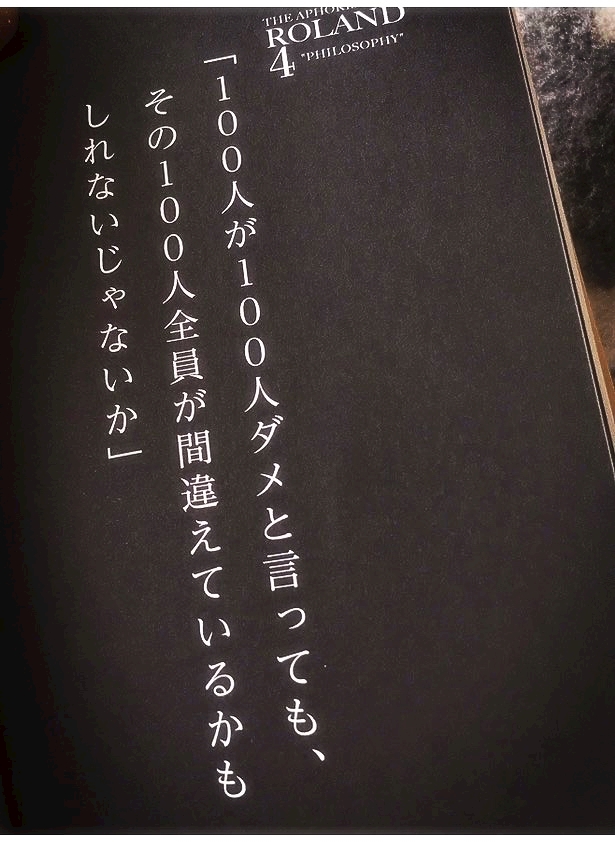 ROLAND
4 "PHILOSOPHY"
「100人が100人ダメと言っても、
その100人全員が間違えているかも
しれないじゃないか」